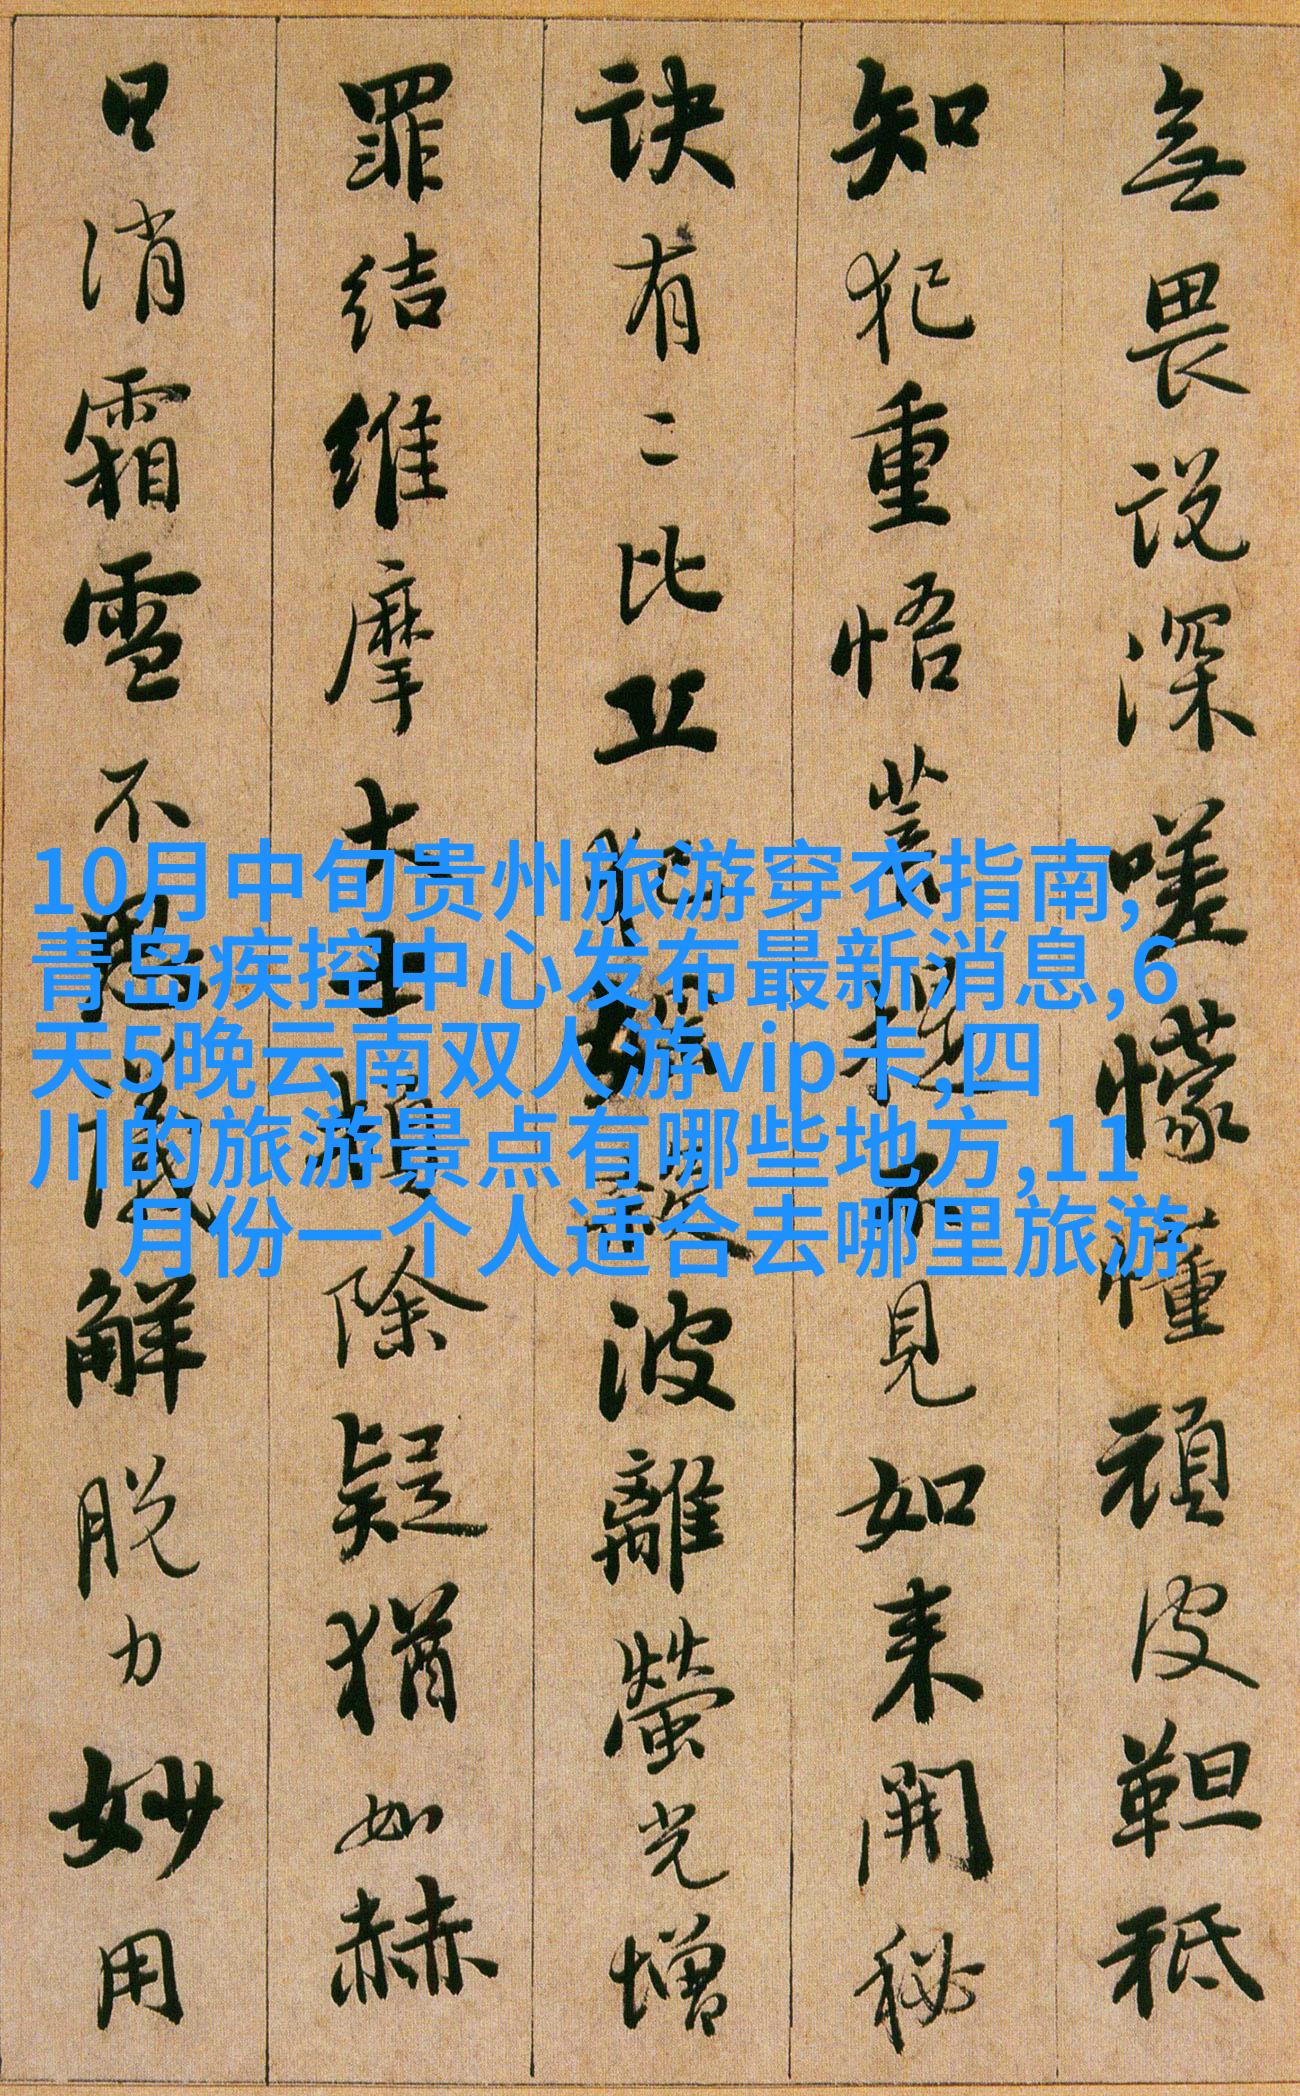 無畏説深嗟懞懂頑皮靼秖
知犯重悟菩提不見如来開秘
訣有二比丘犯婬殺波離螢光增
罪結維摩大士頓除疑猶如赫
日消霜雪不思議解脱力妙用
10月中旬贵州旅游穿衣指南,
青岛疾控中心发布最新消息,6
天5晚云南双人游vip卡,四
川的旅游景点有哪些地方,11
月份一个人适合去哪里旅游